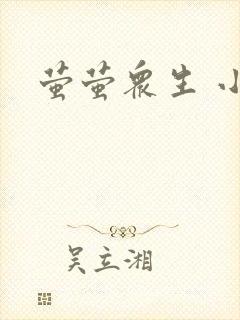 萤萤众生 小
吴立湘